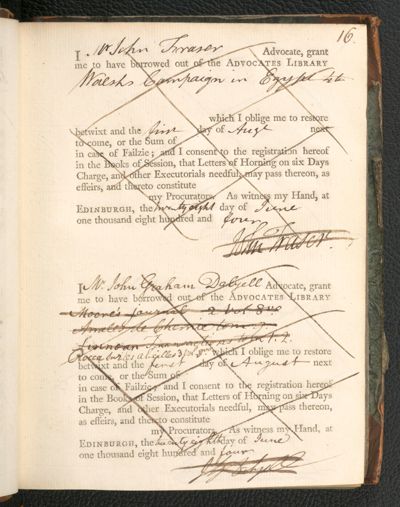 16.
I Mr John Fraser Advocate, grant
me to have borrowed out of the ADVOCATES LIBRARY
Walsh's Campaign in Egypt 4to
which I oblige me to restore
betwixt and the first day of Augt next
to come, or the Sum of
in case of Failzie; and I consent to the registration hereof
in the Books of Session, that Letters of Horning on six Days
Charge, and other Executorials needful, may pass thereon, as
effeirs, and thereto constitute
my Procurators. As witness my Hand, at
EDINBURGH, the twenty eight day of June
one thousand eight hundred and four
John Fraser.
I Mr John Graham Dalyell Advocate, grant
me to have borrowed out of the ADVOCATES LIBRARY
Moore's Journal 2 vol 8vo
Annales de Chimie
Linnean Transactions
which I oblige me to restore
betwixt and the first day of August next
to come, or the Sum of
in case of Failzie; and I consent to the registration hereof
in the Books of Session, that Letters of Horning on six Days
Charge, and other Executorials needful, may pass thereon,
as effeirs, and thereto constitute
my Procurators. As witness my Hand, at
EDINBURGH, the twenty eighth day of June
one thousand eight hundred and four